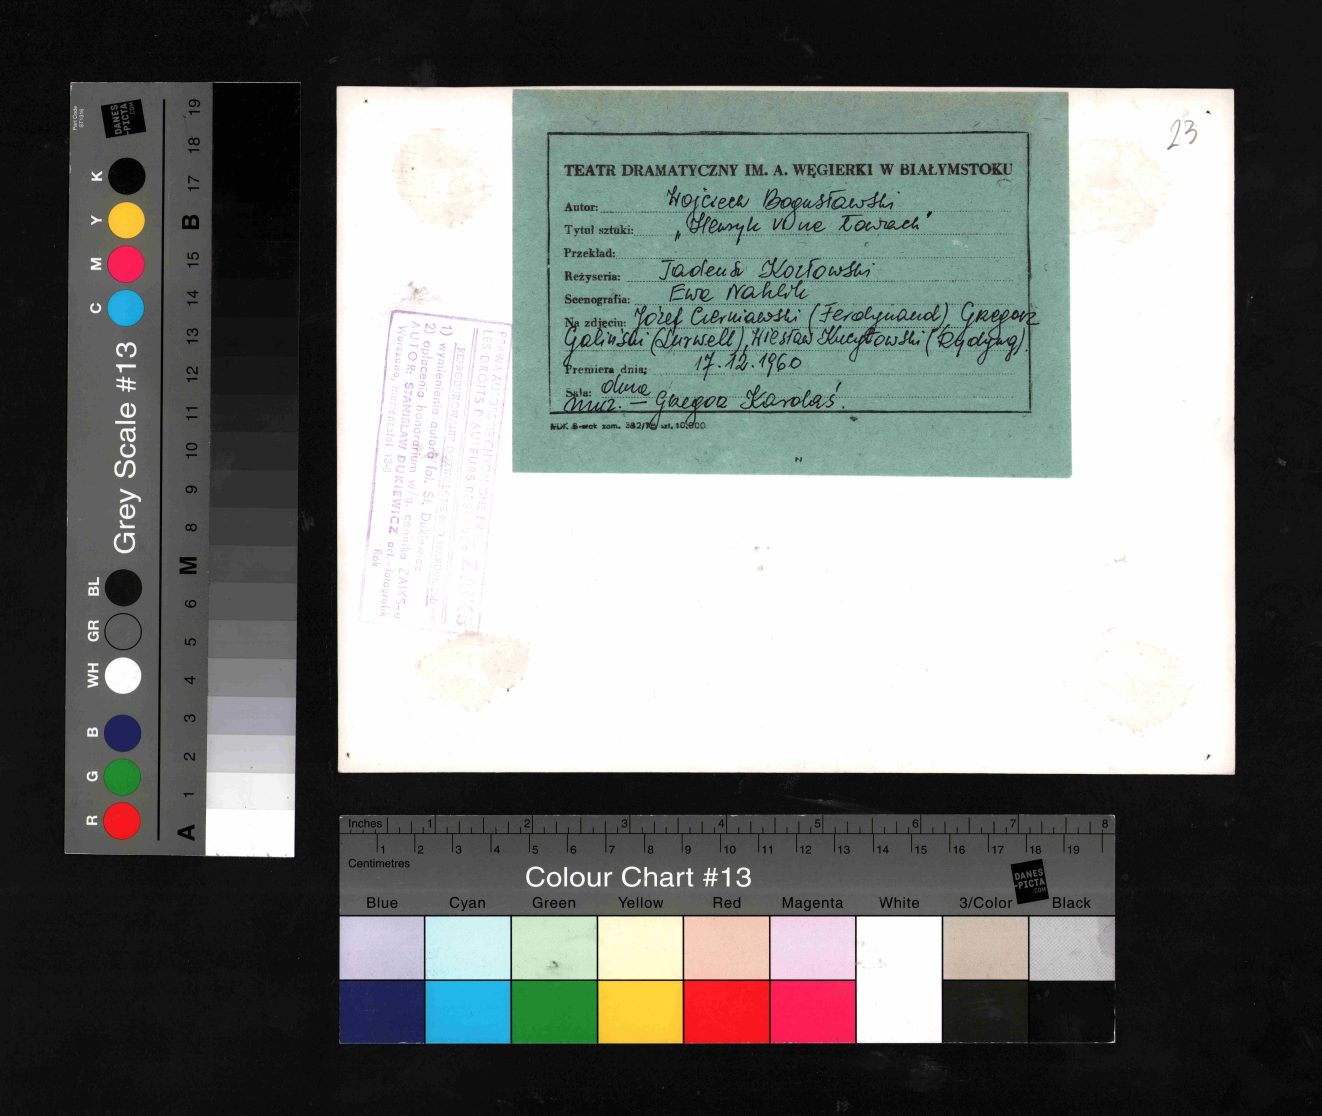 23
TEATR DRAMATYCZNY IM. A. WĘGIERKI W BIAŁYMSTOKU
Autor: Wojciech Bogusławski
Tytuł sztuki: „Henryk VI na łowach"
Przekład:
Reżyseria: Tadeusz Kozłowski
Scenografia: Ewa Nahlik
Na zdjęciu: Józef Czerniawski (Ferdynand) Grzegorz
Galiński (Lurwell), Wiesław (Rydyng).
Premiera dnia: 17.12.1960
Sala: duża
muz. – Grzegorz Kardaś.
B-stok zam. szt. 10.000
PRAWA AUTORSKIE
LES DROITS D'AUTEURS
1) wymienienia autora fot. St. Dukiewicz
2) opłacenia honorarium w/g. cennika ZAIKS-u
AUTOR: STANISŁAW DUKIEWICZ art.-fotografik
Warszawa,
Rok
Part Code
DANES
-PICTA
.COM
Grey Scale #13
R G B WH GR BL C M Y K
A 1 2 3 4 5 6 M 8 9 10 11 12 13 14 15 B 17 18 19
Inches 1 2 3 4 5 6 7 8
1 2 3 4 5 6 7 8 9 10 11 12 13 14 15 16 17 18 19
Centimetres
Colour Chart #13
DANES
-PICTA
.COM
Blue Cyan Green Yellow Red Magenta White 3/Color Black